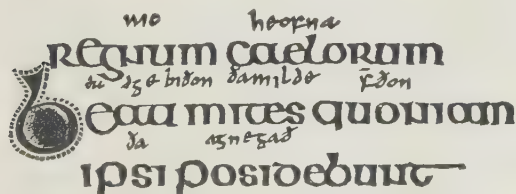 heofna
regnum caelorum
biðon ðamilde f̄ðon
Beati mites quoniam
ða agnegað
ipsi posidebunt